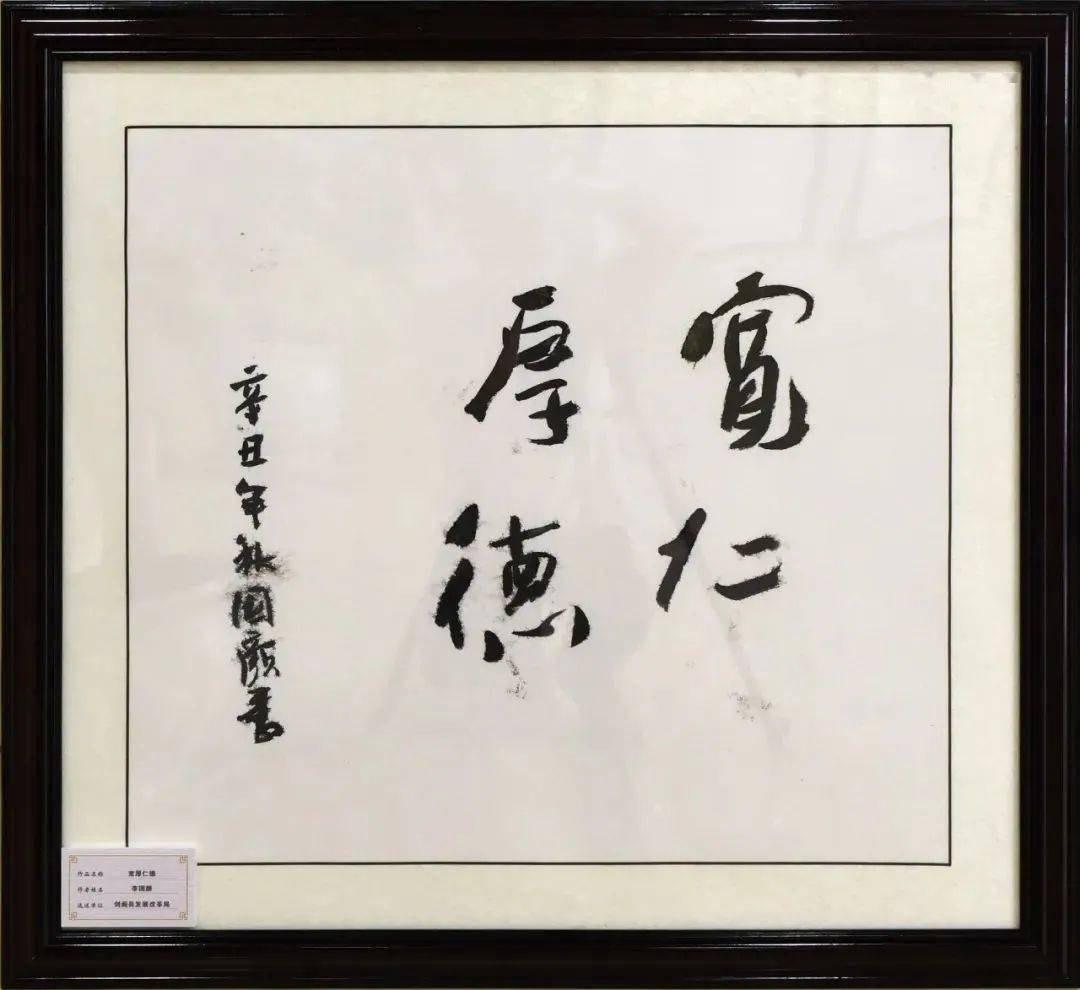 寬仁
厚德
辛丑年秋國顏書
作品名称 宽厚仁德
作者姓名 李国颜
选送单位 剑阁县发展改革局